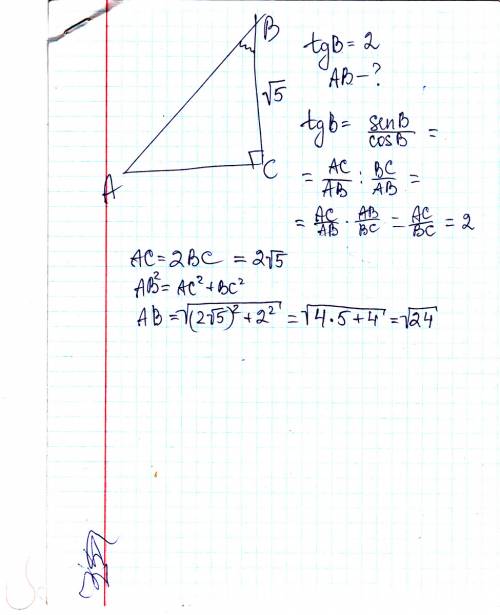 B
tgB = 2
AB - ?
√5
tgB = senB/cosB =
= AC/AB : BC/AB =
C
A
= AC/AB · AB/BC = AC/BC = 2
AC = 2BC = 2√5
AB² = AC² + BC²
AB = √((2√5)² + 2²) = √(4·5+4) = √24